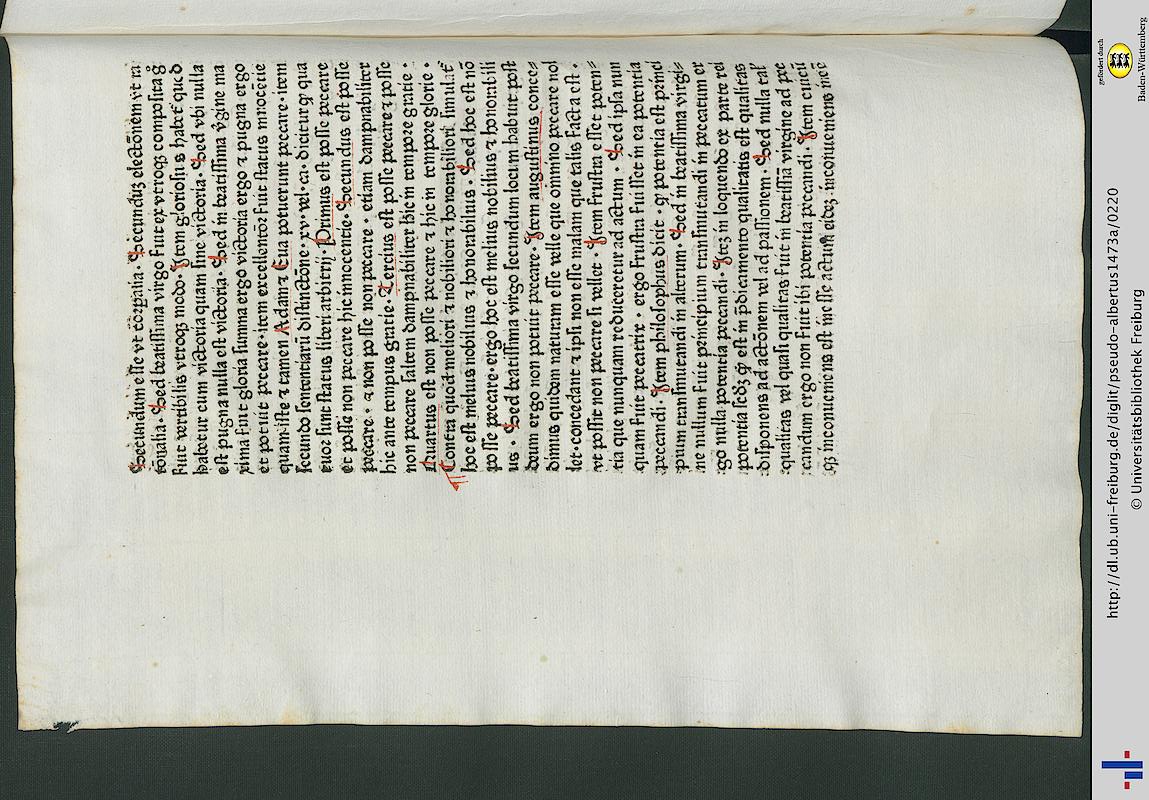 Secundum esse vt corꝑalia · Secunduȝ electōnem vt ra
cōnalia · Sed beatissima virgo fuit ex vtroqȝ composita ꝗ
fuit vertibilis vtroqȝ modo · Itrem gloriosius habet̄ quod
habetur cum victoria quam sine victoria · Sed vbi nulla
est pugna nulla est victoria · Sed in beatissima v̄gine ma
xima fuit gloria summa ergo victoria ergo ⁊ pugna ergo
et potuit peccare · item excellencior fuit status innocēcie
quam iste ⁊ tamen Adam ⁊ Eua potuerunt peccare · item
secundo sententiarū distinctōne · xv · vel · ca · dicitur qȝ qua
tuor sunt status liberi arbitrij · Primus est posse peccare
et posse non peccare hic innocentie · Secundus est posse
peccare · ⁊ non posse non peccare · etiam dampnabiliter
hic ante tempus gratie · Tercius est posse peccare ⁊ posse
non peccare saltem dampnabiliter hic in tempore gratie ·
Quartus est non posse peccare ⁊ hic in tempore glorie ·
Contra quod meliori ⁊ nobiliori ⁊ honorabiliori simulat̄
hoc est melius nobilius ⁊ honorabilius · Sed hoc est nō
posse peccare · ergo hoc est melius nobilius ⁊ honorabili
us · Sed beatissima virgo secundum locum habuit post
deum ergo non potuit peccare · Item augustinus conce⸗
dimus quidem naturam esse velle que omnino peccare nol
let · concedant ⁊ ipsi non esse malam que talis facta est ·
vt possit non peccare si vellet · Item frustra esset poten⸗
tia que nunquam reduceretur ad actum · Sed ipsa nun
quam fuit peccatrix · ergo frustra fuisset in ea potentia
peccandi · Item philosophus dicit · qȝ potentia est princi
pium transmutandi in alterum · Sed in beatissima virgi⸗
ne nullum fuit principium transmutandi in peccatum er
go nulla potentia peccandi · Iteȝ in loquendo ex parte rei
potentia scd̄ȝ ꝙ est in p̄dicamento qualitatis est qualitas
disponens ad actōnem vel ad passionem · Sed nulla tal
qualitas vel quasi qualitas fuit in beatissīa virgine ad pec
candum ergo non fuit ibi potentia peccandi · Item cuicū
qȝ inconueniens est inesse actum eideȝ inconueniens inēē
http://dl.ub.uni-freiburg.de/diglit/pseudo-albertus1473a/0220
© Universitätsbibliothek Freiburg
gefördert durch
Baden-Württemberg